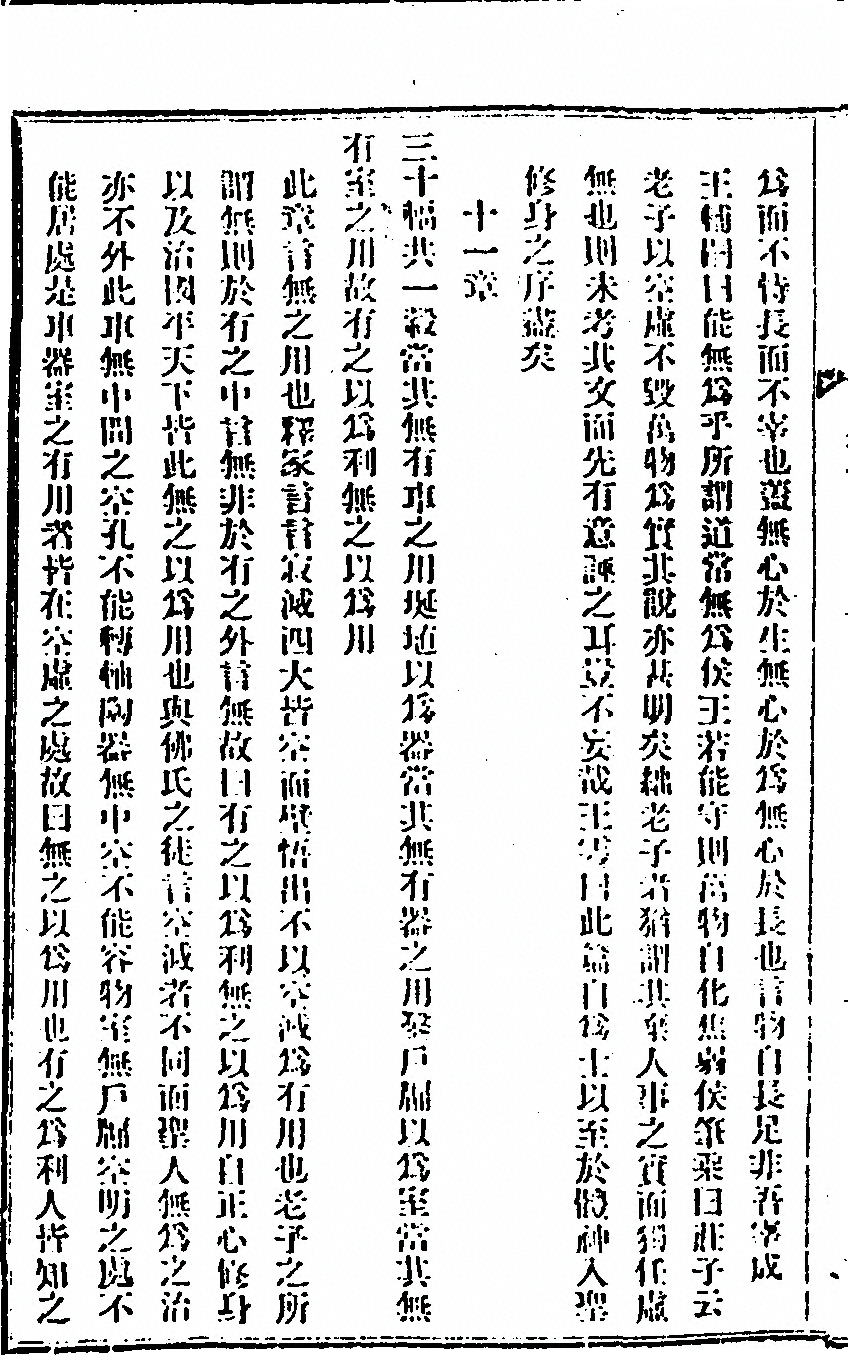 爲而不恃長而不宰也蓋無心於生無心於爲無心於長也言物自長足非吾宰成
王輔嗣曰能無爲乎所謂道常無爲侯王若能守則萬物自化焦弱侯筆乘曰莊子云
老子以空虛不毀萬物爲實其說亦甚明矣絀老子者猶謂其棄人事之實而獨任虛
無也則未考其文而先有意誣之耳豈不妄哉王雱曰此篇自爲士以至於體神入聖
修身之序盡矣
十一章
三十幅共一轂當其無有車之用埏埴以爲器當其無有器之用鑿戶牖以爲室當其無
有室之用故有之以爲利無之以爲用
此章言無之用也釋家言言寂滅四大皆空而覺悟出不以空滅爲有用也老子之所
謂無則於有之中言無非於有之外言無故曰有之以爲利無之以爲用自正心修身
以及治國平天下皆此無之以爲用也與佛氏之徒言空滅者不同而聖人無爲之治
亦不外此車無中間之空孔不能轉軸陶器無中空不能容物室無戶牖空明之處不
能居處是車器室之有用者皆在空虛之處故曰無之以爲用也有之爲利人皆知之